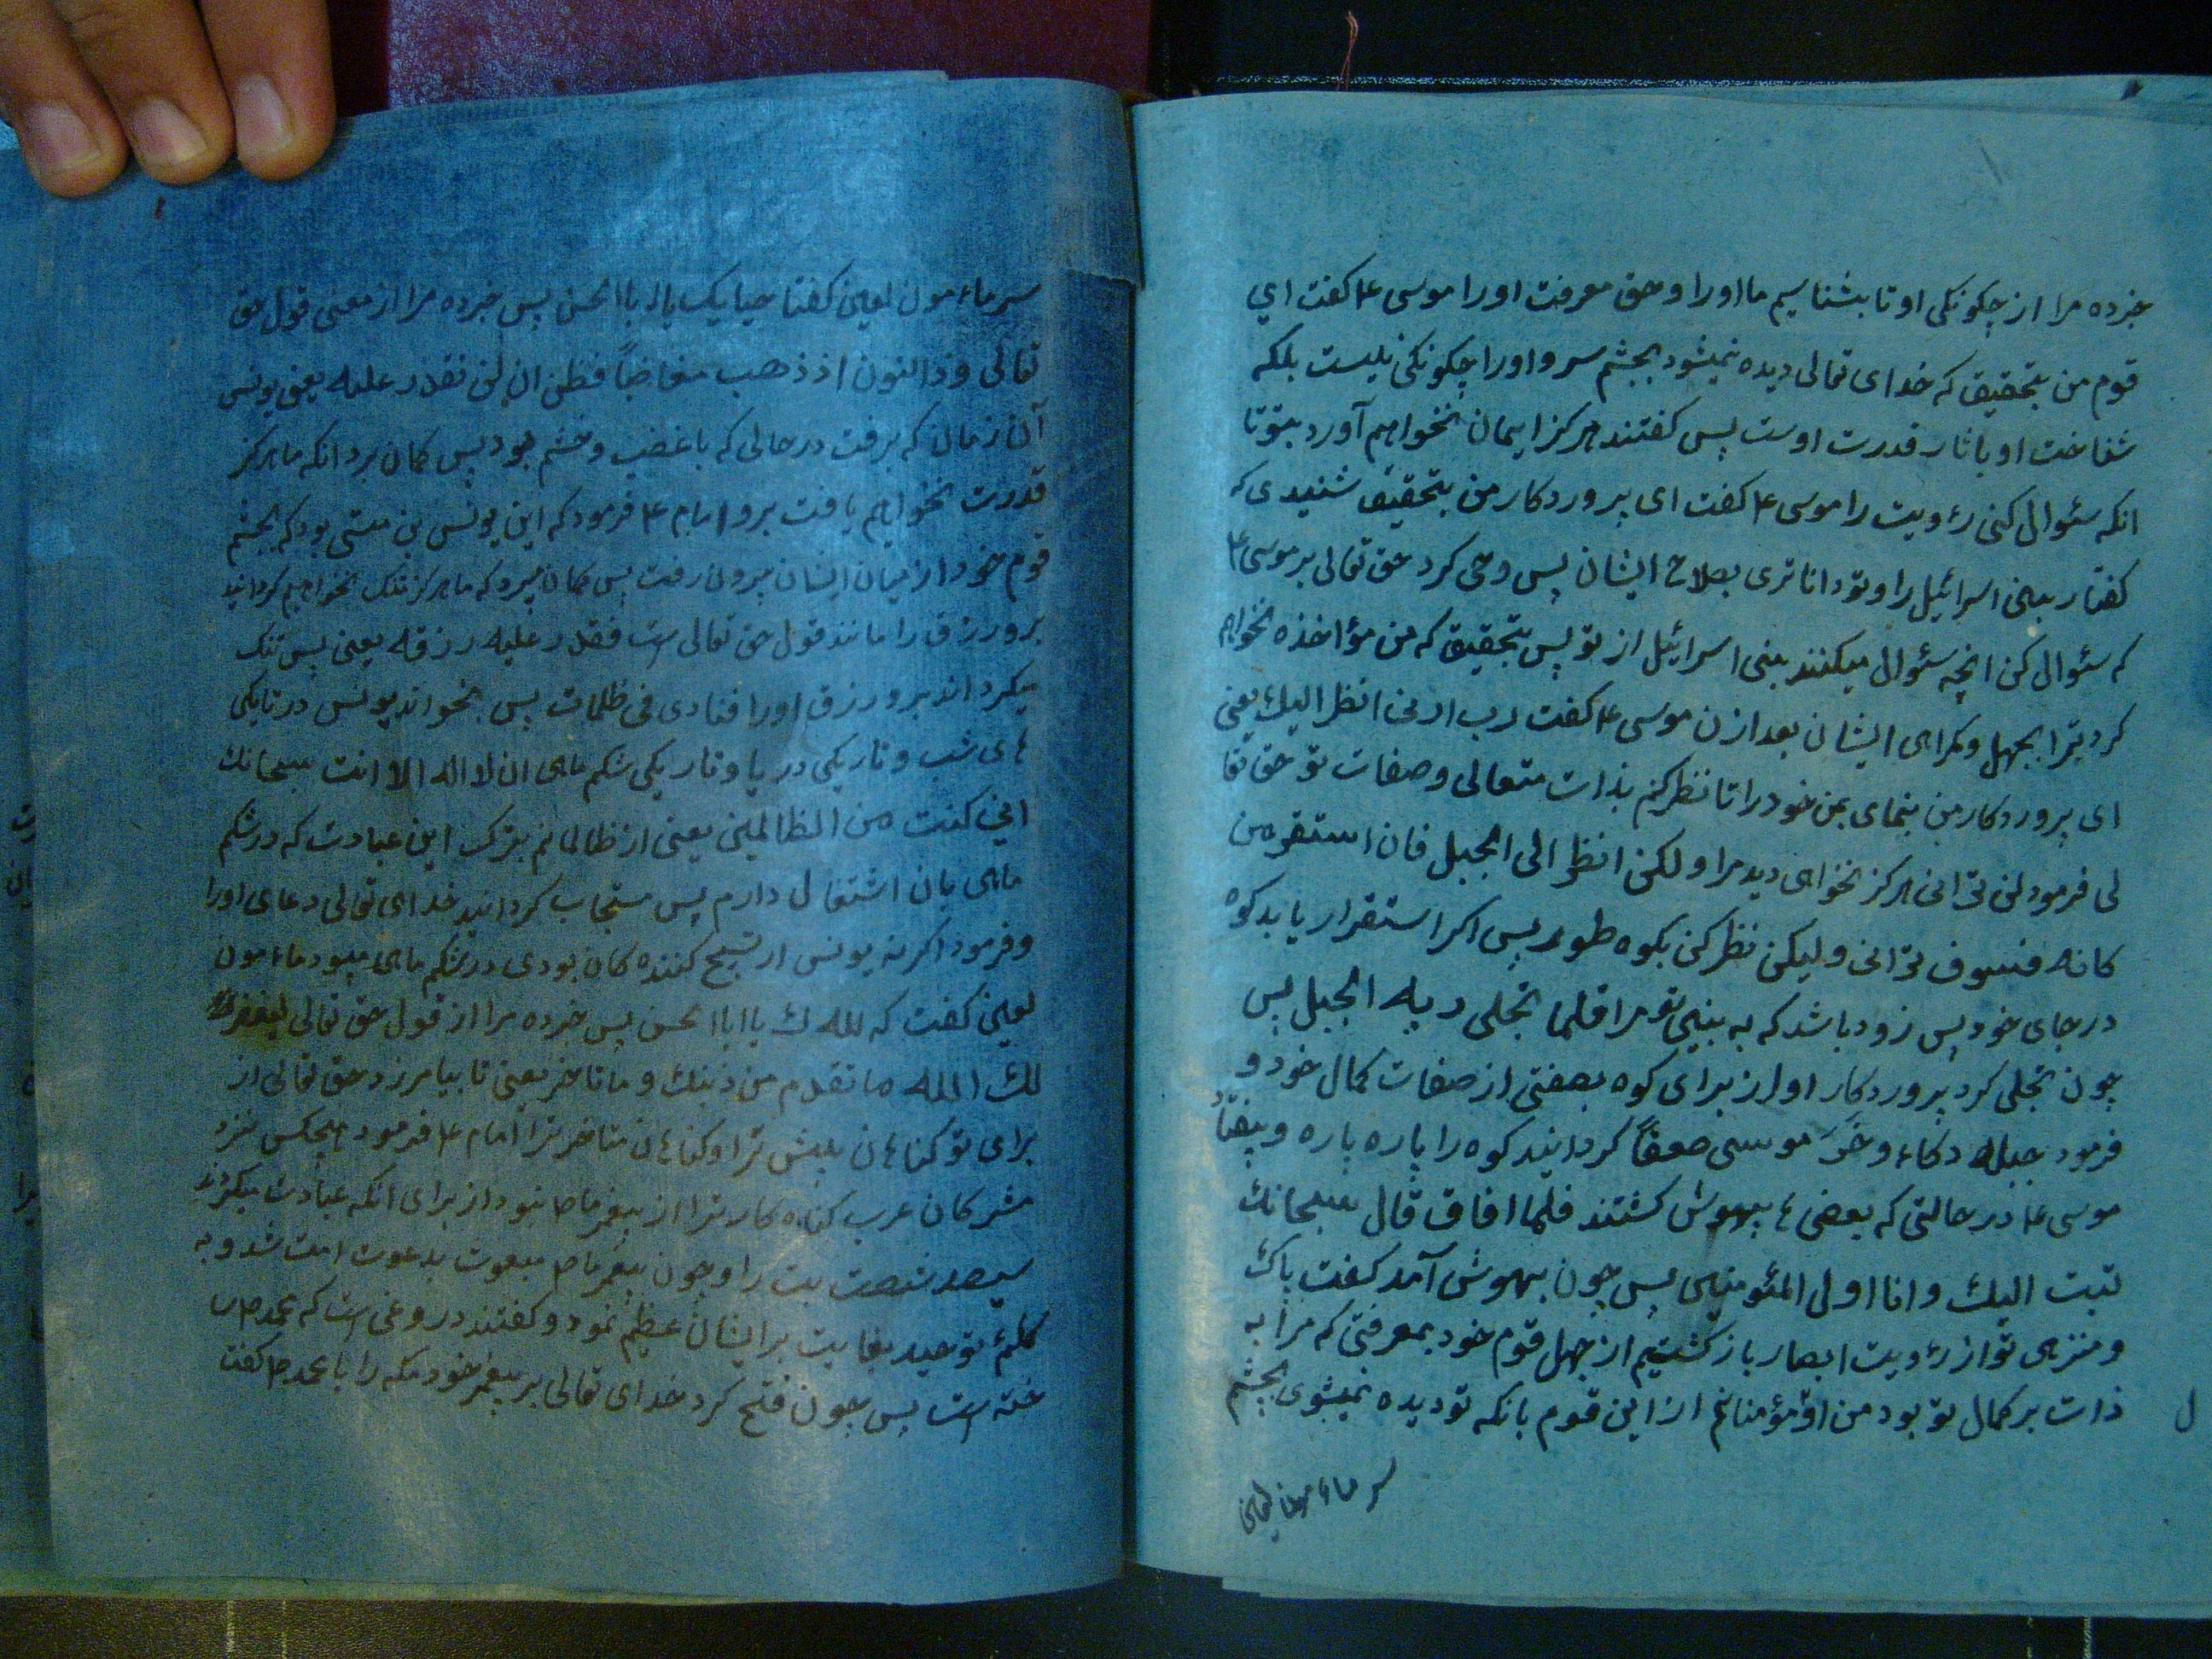 خبرده مرا از چکونکی او تا بشناسیم ما اورا وحق معرفت اورا موسی ع کفت ای
قوم من بتحقیق که خدای تعالی دیده نمیشود بچشم سر و اورا چکونکی نیست بلکه
شناخت او باثار قدرت اوست پس کفتند هرکز ایمان نخواهیم آورد بتو تا
انکه سئوال کنی رؤیت را موسی ع کفت ای پروردکار من بتحقیق شنیدی که
کفتار بنی اسرائیل را و تو داناتری بصلاح ایشان پس وحی کرد حق تعالی بر موسی ع
که سئوال کن انچه سئوال میکنند بنی اسرائیل از تو پس بتحقیق که من مؤاخذه نخواهم
کرد ترا بجهل و کمراهی ایشان بعد ازن موسی ع کفت رب ارنی انظر الیك یعنی
ای پروردکار من بنمای بمن خود را تا نظر کنم بذات متعالی وصفات تو حق تعا
لی فرمود لن ترانی هرکز نخواهی دید مرا ولکن انظر الی الجبل فان استقر من
کانه فسوف ترانی ولیکن نظر کن بکوه طور پس اکر استقرار یابد کوه
در جای خود پس زود باشد که به بینی تو مرا فلما تجلی ربه الجبل پس
چون تجلی کرد پروردکار او از برای کوه بصفتی از صفات کمال خود و
فرمود جبله دکاء وخرّ موسی صعقاً کردانید کوه را پاره پاره و بیفتاد
موسی ع در حالتی که بعضی ها بیهوش کشتند فلما افاق قال سبحانك
تبت الیك وانا اولی المئومنین پس چون بهوش آمد کفت پاك
ومنزهی تو از رؤیت ابصار باز کشتیم از جهل قوم خود بمعرفتی که مرا به
ذات برکمال تو بود من او مؤمنانم ازاین قوم بانکه تو دیده نمیشوی بچشم
سر ماءمون لعین
سر ماءمون لعین کفتا حیایک یا ابا الحسن پس خبرده مرا از معنی قول حق
تعالی وذا النون اذ ذهب مغاضباً فظن ان لن نقدر علیه یعنی یونس
آن زمان که برفت در حالی که با غضب وخشم بود پس کمان برد انکه ما هرکز
قدرت نخواهیم یافت برو امام ع فرمود که این یونس بن متی بود که بخشم
قوم خود از میان ایشان بیرون رفت پس کمان ببرد که ما هرکز تنک نخواهیم کردانید
برو رزق را مانند قول حق تعالی است فقدر علیه رزقه یعنی پس تنک
میکرداند برو رزق اورا فنادی فی ظلمات پس بخواند یونس در تاریکی
های شب و تاریکی دریا و تاریکی شکم ماهی ان لا اله الا انت سبحانك
انی کنت من الظالمین یعنی از ظالمانم بترک این عبادت که در شکم
ماهی بان اشتغال دارم پس مستجاب کردانید خدای تعالی دعای اورا
وفرمود اکر نه یونس از تسبیح کننده کان بودی در شکم ماهی میبود ماءمون
لعین کفت که لله لك یا ابا الحسن پس خبرده مرا از قول حق تعالی لیغفر
لك الله ما تقدم من ذنبك وما تاخر یعنی تا بیامرزد حق تعالی از
برای تو کناهان پیش ترا وکناهان متاخر ترا امام ع فرمود هیچکس نزد
مشرکان عرب کناه کارتر از پیغمبر ما ص نبود از برای انکه عبادت میکردند
سیصد شصت بت را وچون پیغمبر ما ص مبعوث بدعوت امت شد و به
کلمهٔ توحید بغایت بر ایشان عظیم نمود وکفتند دروغی است که محمد ص
است پس چون فتح کرد خدای تعالی بر پیغمبر خود مکه را با محمد ص کفت